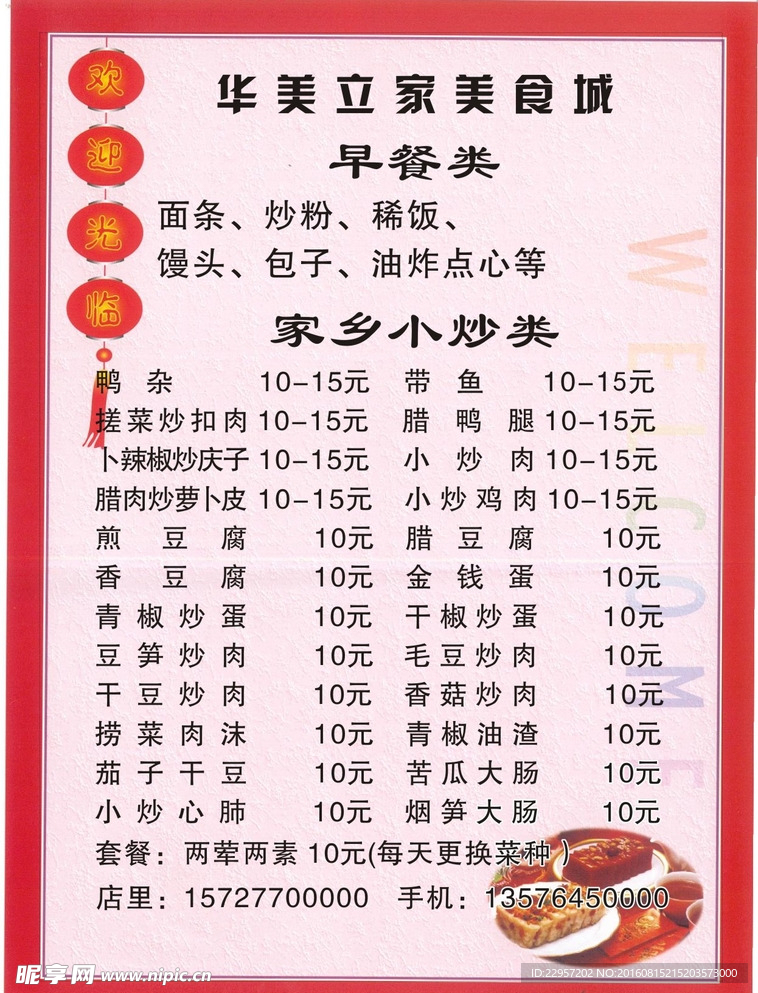 欢迎光临
华美立家美食城
早餐类
面条、炒粉、稀饭、
馒头、包子、油炸点心等
家乡小炒类
鸭杂 10-15元 带鱼 10-15元
搓菜炒扣肉 10-15元 腊鸭腿 10-15元
卜辣椒炒庆子 10-15元 小炒肉 10-15元
腊肉炒萝卜皮 10-15元 小炒鸡肉 10-15元
煎豆腐 10元 腊豆腐 10元
香豆腐 10元 金钱蛋 10元
青椒炒蛋 10元 干椒炒蛋 10元
豆笋炒肉 10元 毛豆炒肉 10元
干豆炒肉 10元 香菇炒肉 10元
捞菜肉沫 10元 青椒油渣 10元
茄子干豆 10元 苦瓜大肠 10元
小炒心肺 10元 烟笋大肠 10元
套餐：两荤两素 10元(每天更换菜种 )
店里：15727700000 手机：13576450000
WELCOME
昵享网 www.nipic.cn
ID:22957202 NO:20160815215203573000